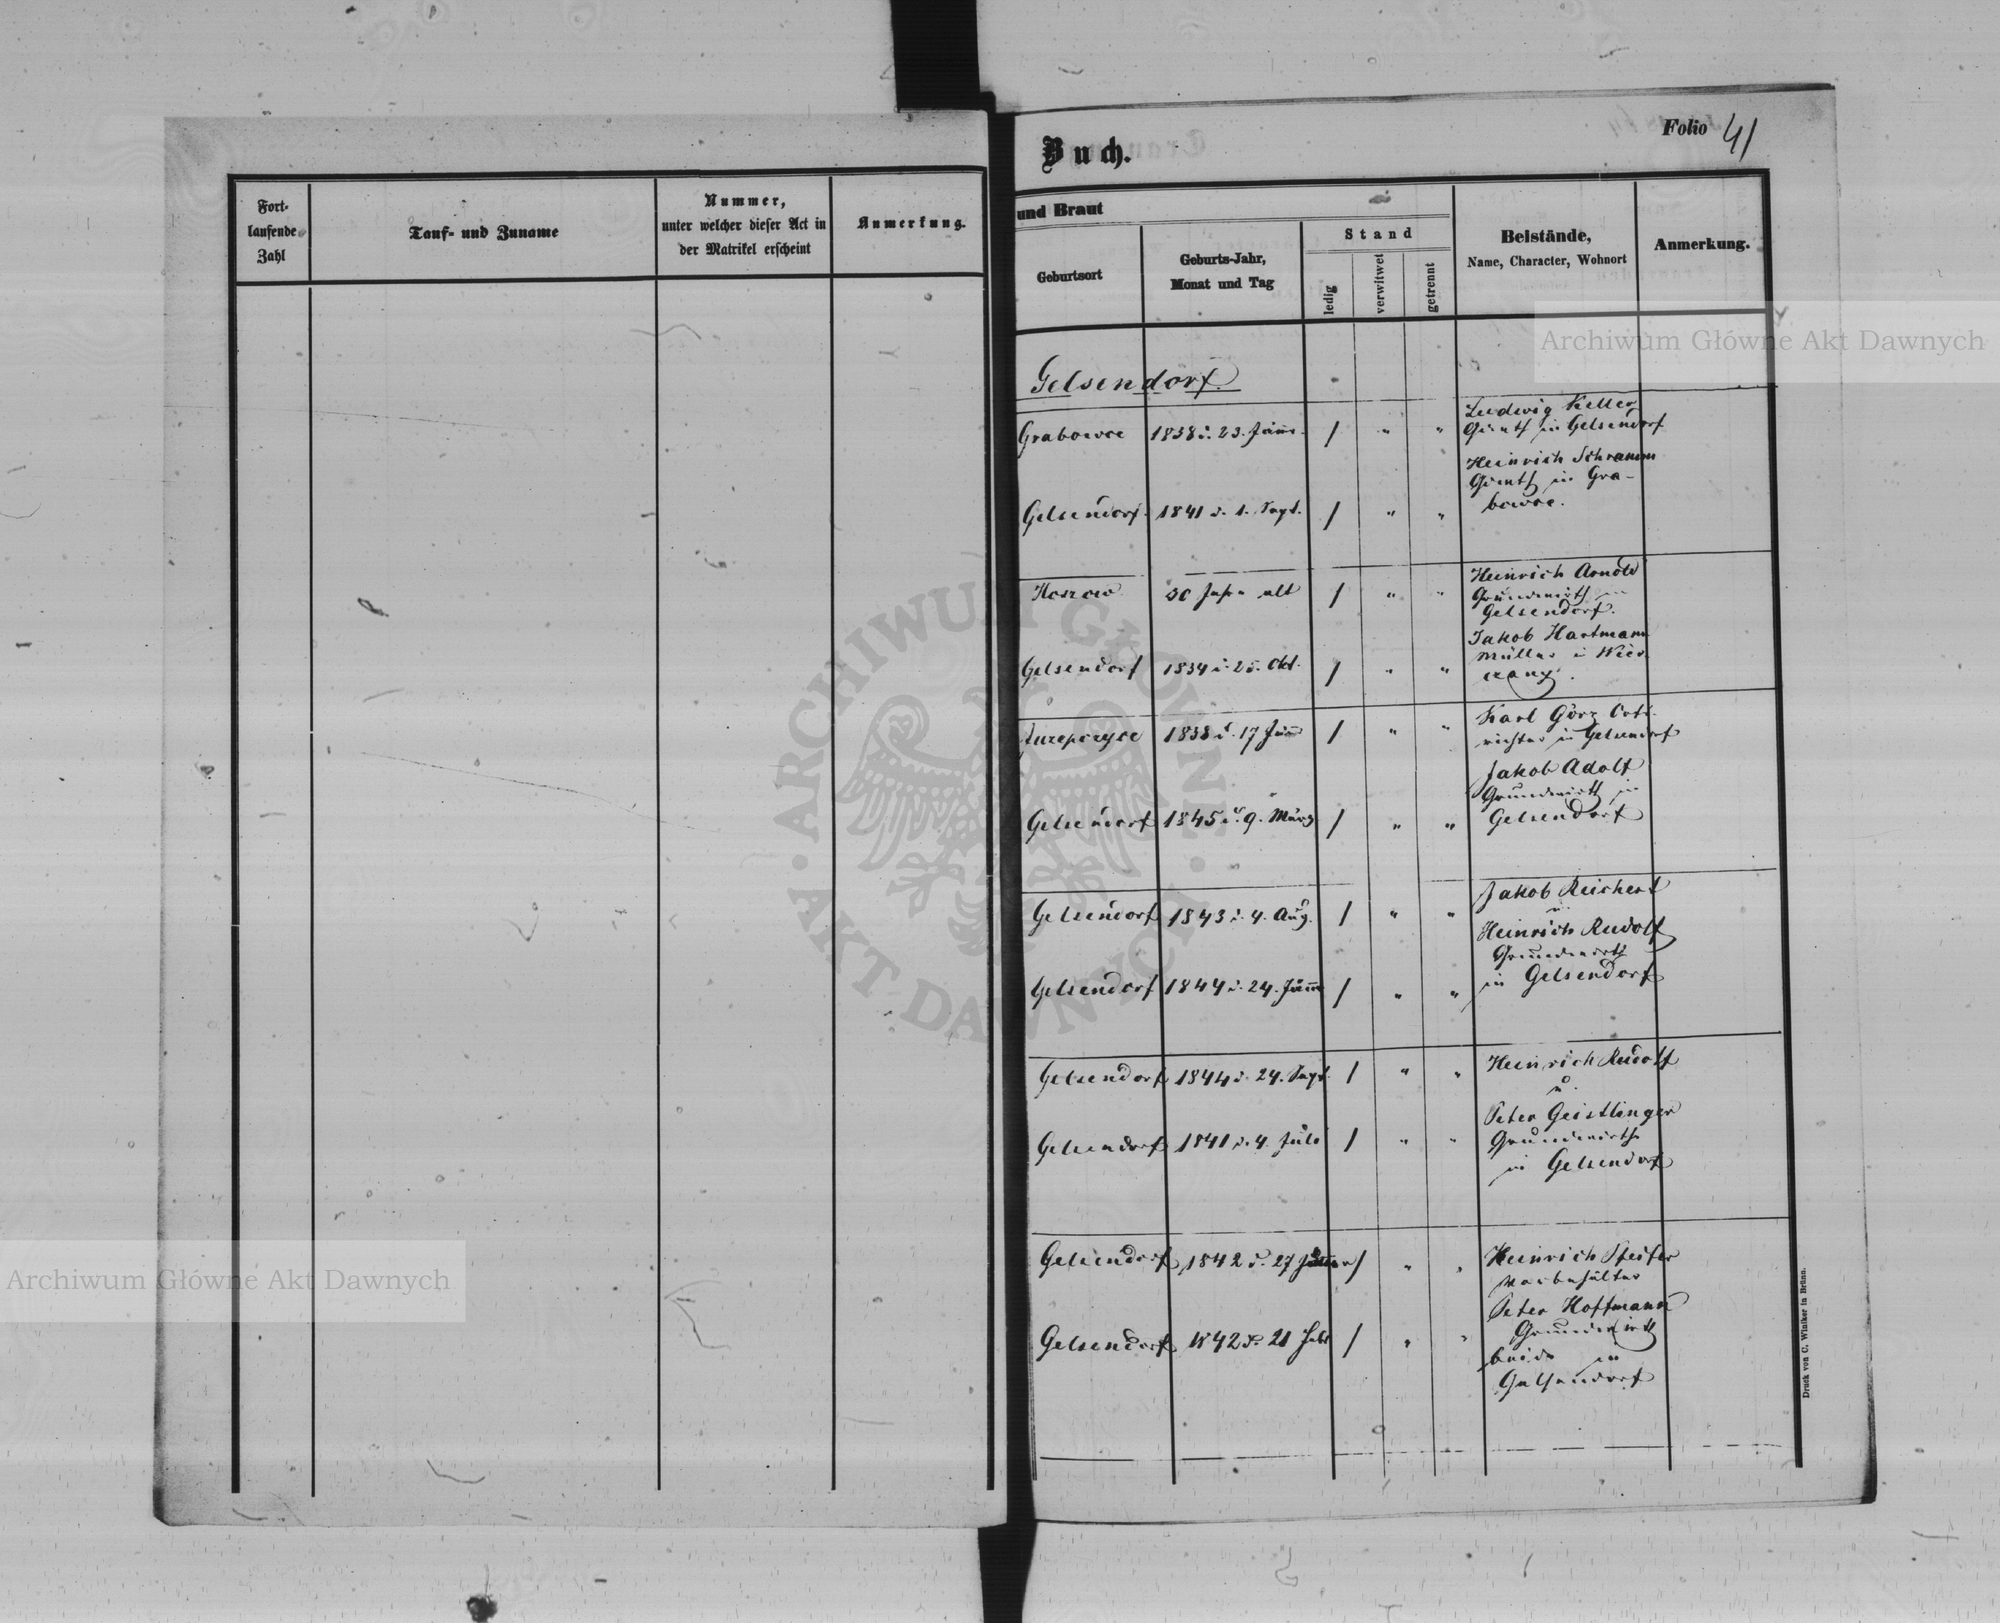 Fort-
laufende
Zahl
Tauf- und Zuname
Nummer,
unter welcher dieser Act in
der Matrikel erscheint
Anmerkung.
Buch.
Folio 41
und Braut
Geburtsort
Geburts-Jahr,
Monat und Tag
Stand
ledig
verwitwet
getrennt
Beistände,
Name, Character, Wohnort
Anmerkung.
Gelsendorf.
Grabowce 1838 d. 23. / " "
Ludwig Keller
in Gelsendorf
Heinrich Schramm
in Gra-
bowce.
Gelsendorf. 1841 d. 1. Sept. / " "
30 Jahr alt / " "
Heinrich Arnold
Grundwirth in
Gelsendorf.
Jakob Hartmann
Müller in
Gelsendorf 1834 d. 25. Okt. / " "
1838 d. 17 / " "
Karl Görz Orts-
richter in Gelsendorf
Jakob Adolf
Grundwirth in
Gelsendorf
Gelsendorf 1845 d. 9. März / " "
Gelsendorf 1843 d. 4. Aug. / " "
Jakob Reichert
u.
Heinrich Rudolf
Grundwirth
in Gelsendorf
Gelsendorf 1844 d. 24. / " "
Gelsendorf 1844 d. 24. Sept. / " "
Heinrich Rudolf
u.
Peter Geistlinger
Grundwirthe
in Gelsendorf
Gelsendorf 1841 d. 4. Juli / " "
Gelsendorf 1842 d. 27 / " "
Heinrich Pfeifer
Peter Hoffmann
Grundwirth
beide in
Gelsendorf
Gelsendorf 1842 d. 21 / " "
Druck von C. Winiker in Brünn.
Archiwum Główne Akt Dawnych
ARCHIWUM GŁÓWNE · AKT DAWNYCH ·
Archiwum Główne Akt Dawnych